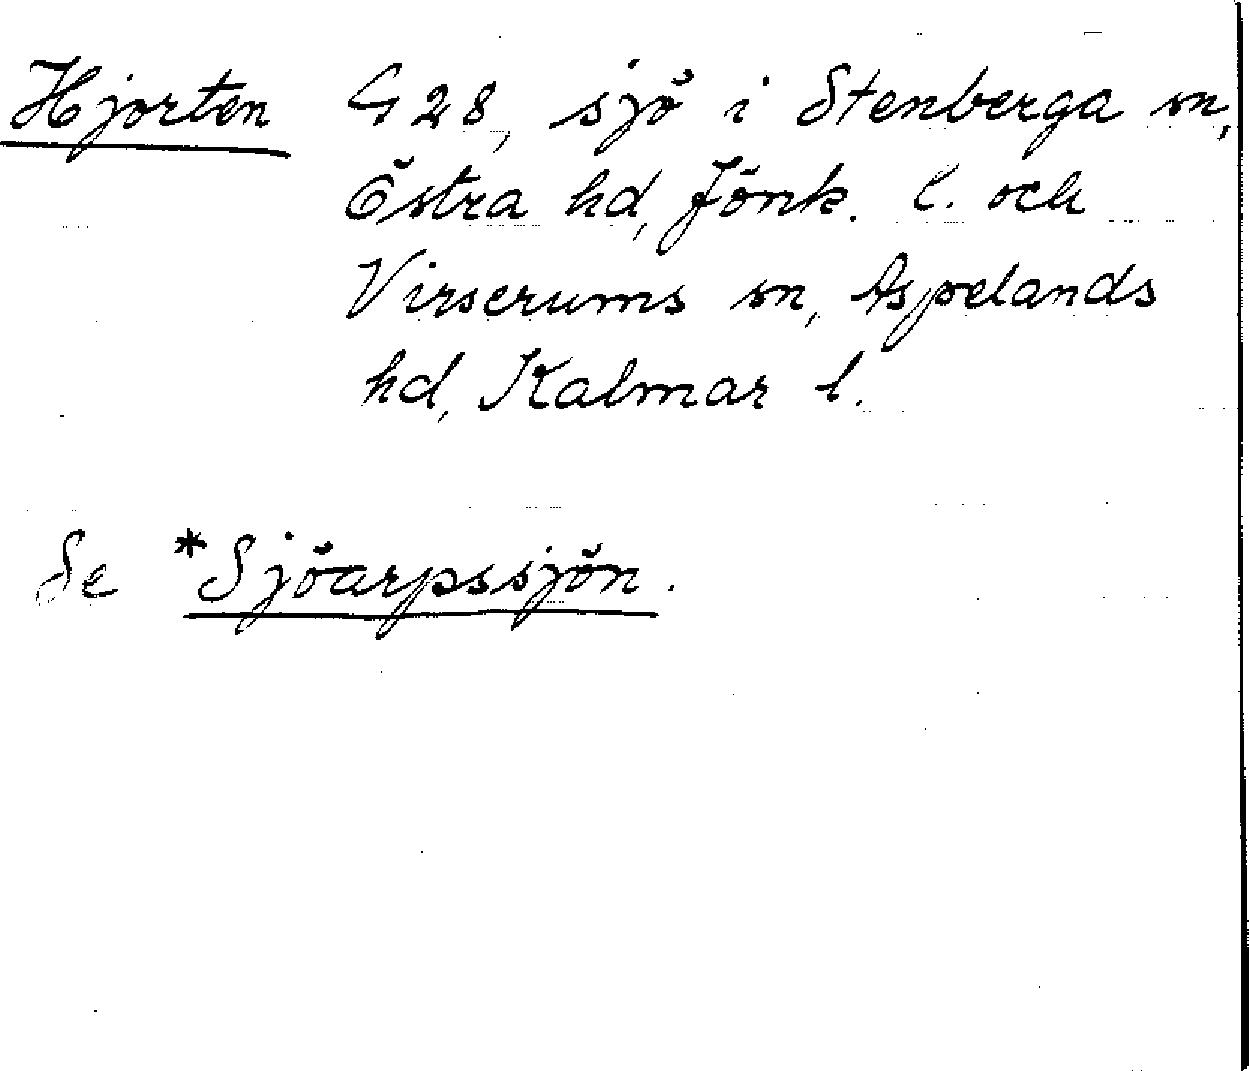 Hjorten G 28, sjö i Stenberga sn,
Östra hd, Jönk. l. och
Virserums sn, Aspelands
hd, Kalmar l.
Se *Sjöarpssjön.